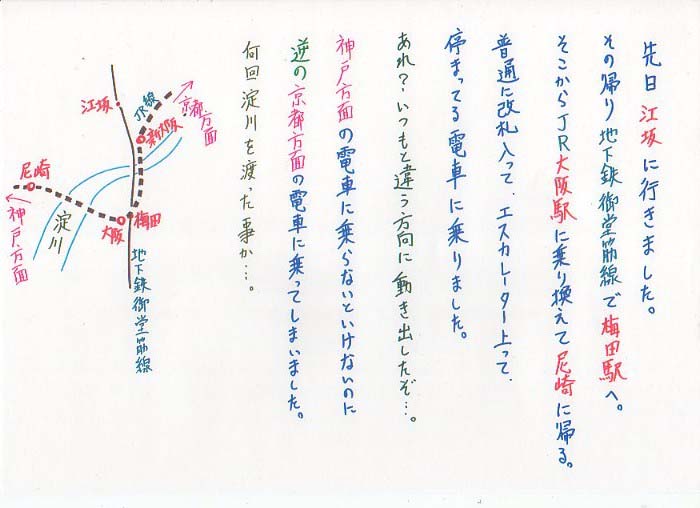 先日江坂に行きました。
その帰り地下鉄御堂筋線で梅田駅へ。
そこからJR大阪駅に乗り換えて尼崎に帰る。
普通に改札入って、エスカレーター上って、
停まってる電車に乗りました。
あれ？いつもと違う方向に動き出したぞ…。
神戸方面の電車に乗らないといけないのに
逆の京都方面の電車に乗ってしまいました。
何回淀川を渡った事か…。
京都方面
JR線
新大阪
江坂
梅田
大阪
地下鉄御堂筋線
淀川
尼崎
神戸方面